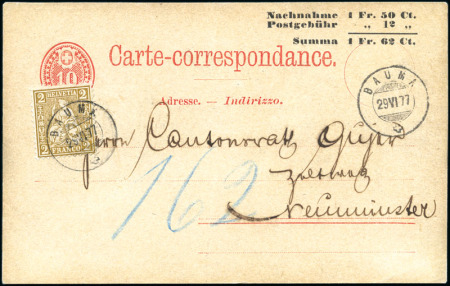 Nachnahme 1 Fr. 50 Ct.
Postgebühr „ 12 „
Summa 1 Fr. 62 Ct.
10
Carte-correspondance.
Adresse. — Indirizzo.
BAUMA
29 VI 77
2 HELVETIA 2
2 FRANCO 2
BAUMA
29 VI 77
Herrn Cantonsrath Guyer
Zeltweg
Neumünster
162